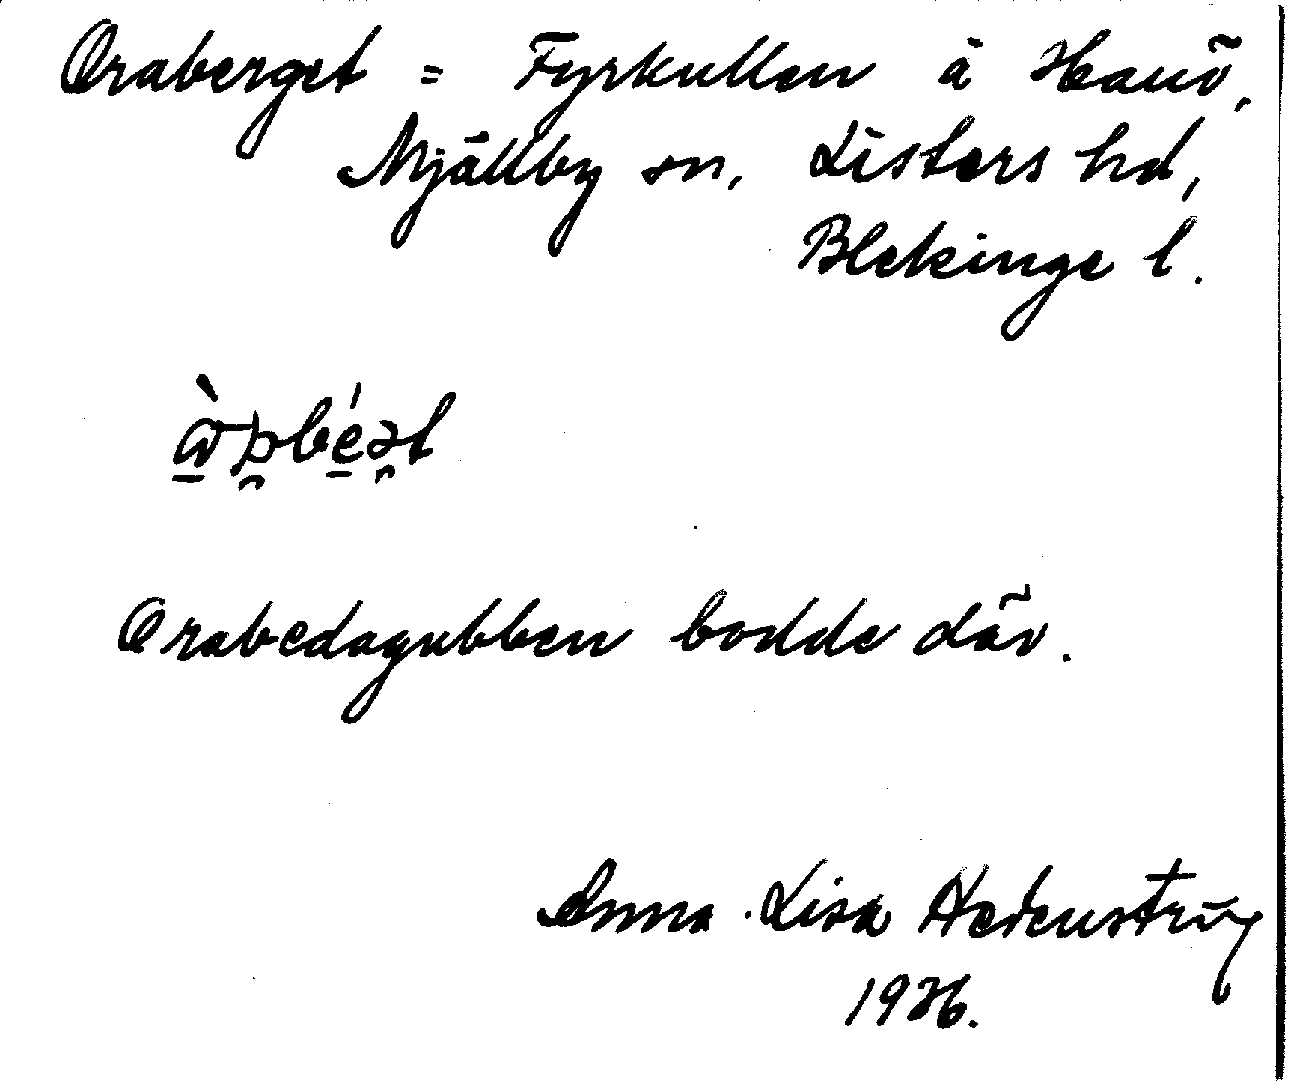 Oraberget = Fyrkullen å Hanö,
Mjällby sn, Listers hd,
Blekinge l.
Orabedagubben bodde där.
Anna-Lisa Hedenstrüg
1926.